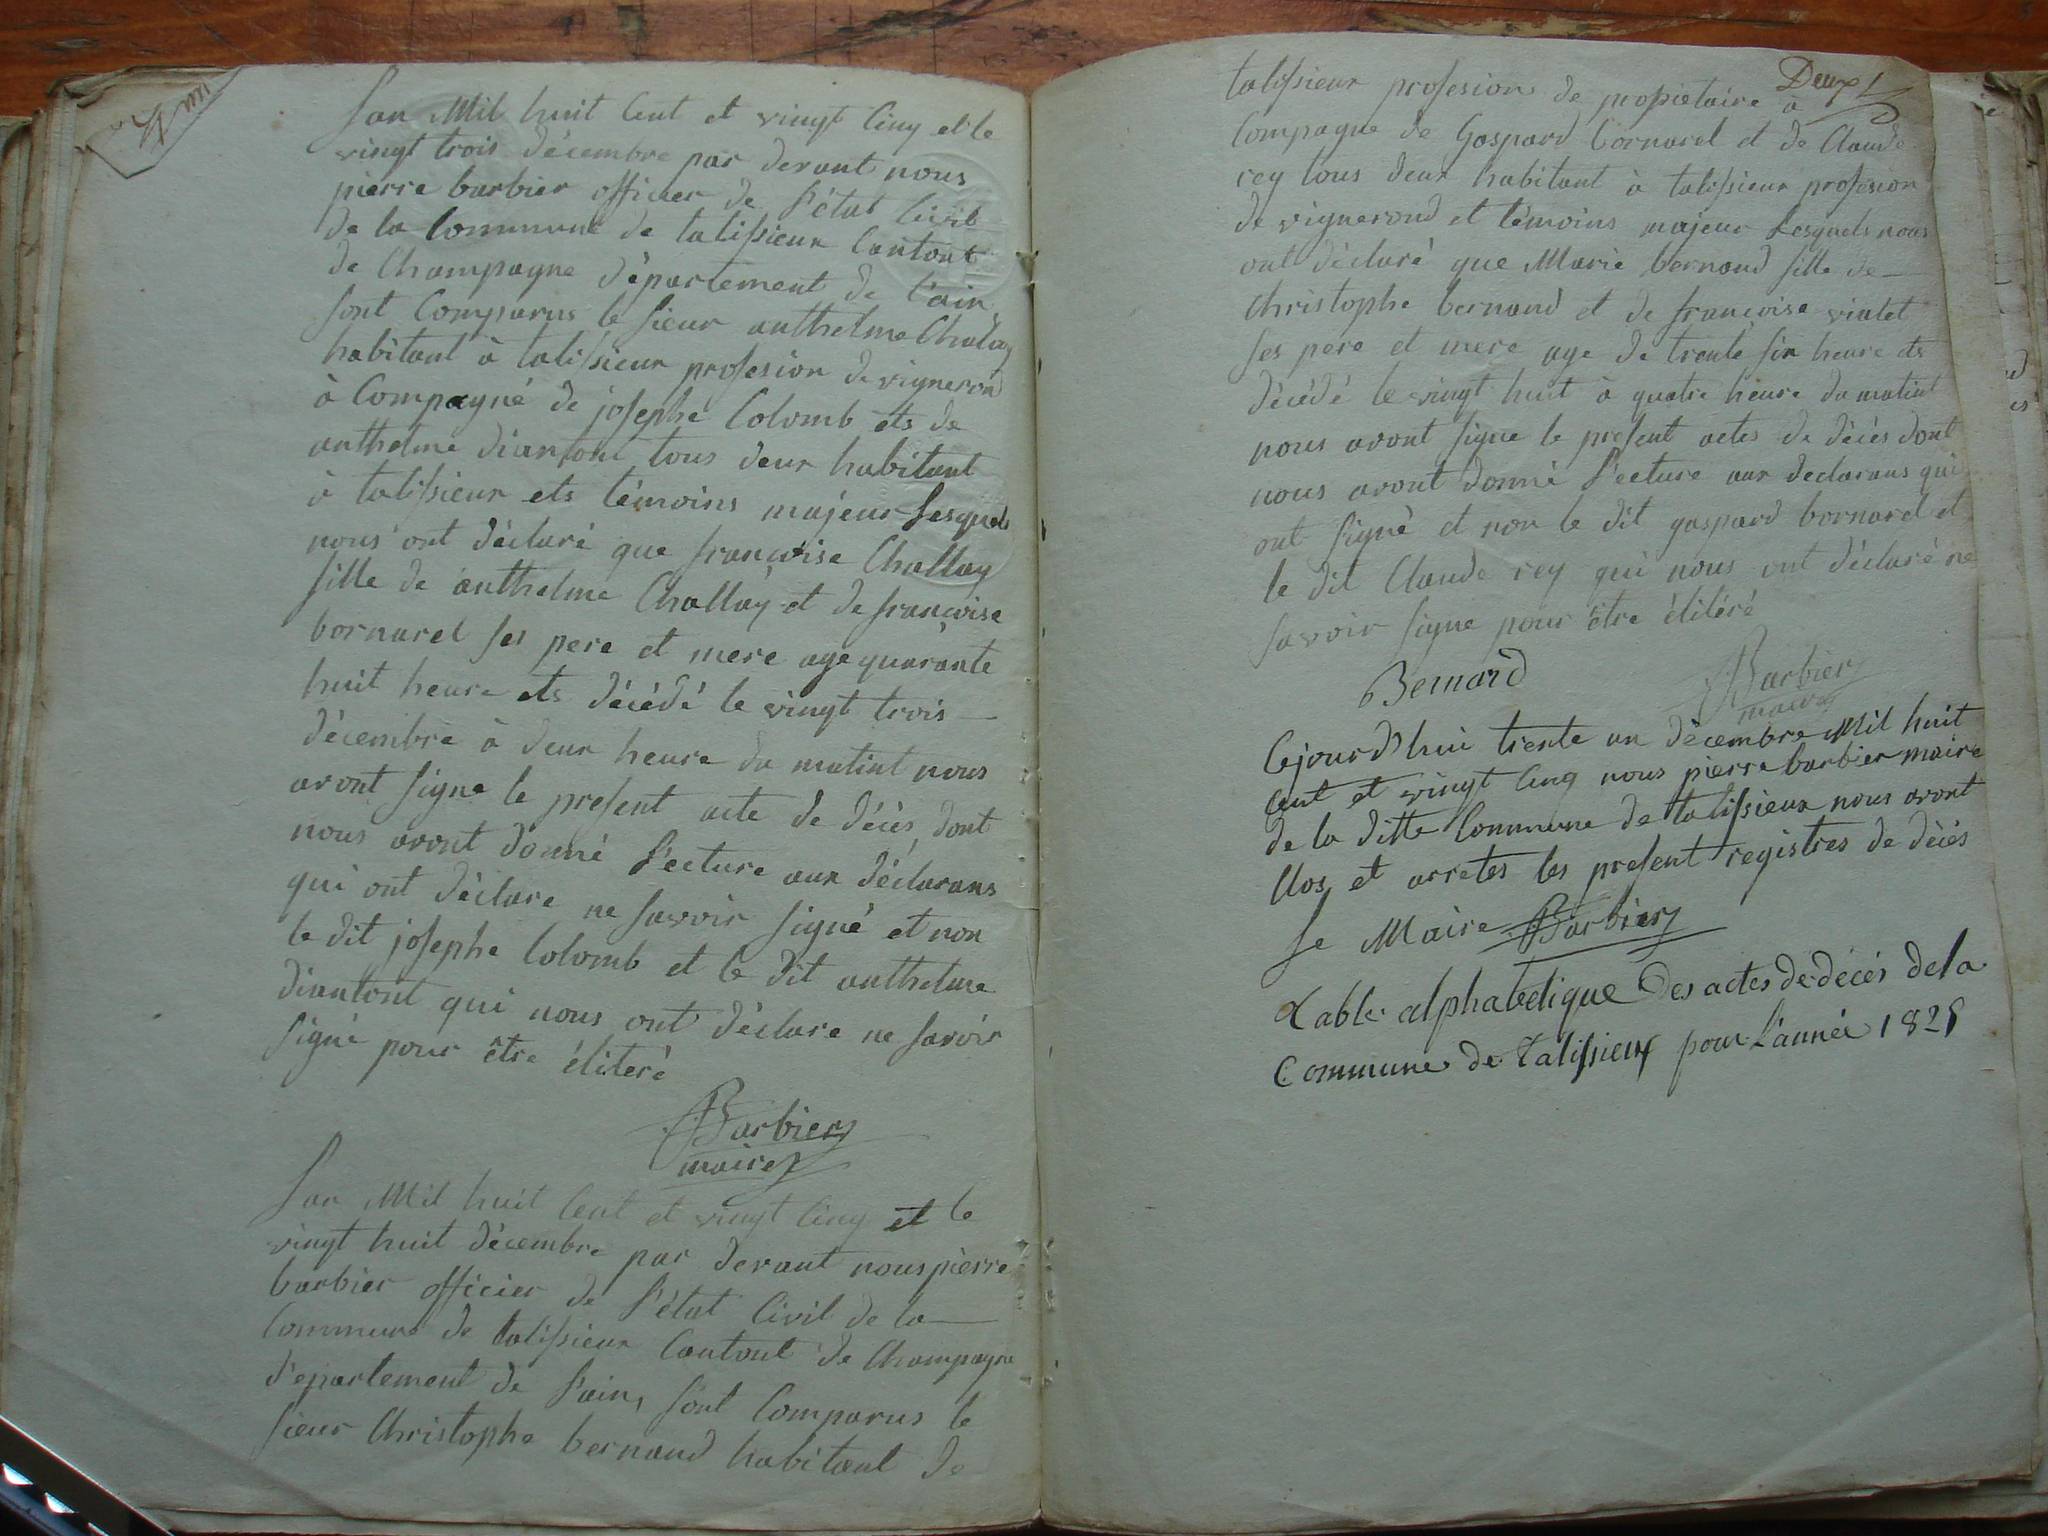 Lan Mil huit Cent et vingt Cinq et le
vingt trois décembre par devant nous
pierre barbier officier de l'état Civil
de la Commune de talissieux Cantont
de Champagne département de l'ain
sont Comparus le sieur anthelme Chalay
habitant à talissieur profesion de vigneron
à Compagné de josephe Colomb ets de
anthelme diantont tous deux habitant
à talissieur ets témoins majeur Lesquels
nous ont déclaré que francoise Challay
fille de anthelme Challay et de francoise
bornarel ses pere et mere age quarante
huit heure ets décédé le vingt trois
décembre à deux heure du matint nous
avont signe le present acte de décès dont
nous avont donné Lecture aux déclarans
qui ont déclare ne savoir signé et non
le dit josephe Colomb et le dit anthelme
diantont qui nous ont déclare ne savoir
signé pour être élitéré
Barbier
maire
Lan Mil huit Cent et vingt Cinq et le
vingt huit décembre par devant nous pierre
barbier officier de l'état Civil de la
Commune de talissieux Cantont de Champagne
département de l'ain, sont Comparus le
sieur Christophe bernand habitant de
Deux
talissieur profesions de propiétaire à
Compagne de Gaspard Bornarel et de Claude
rey tous deux habitant à talissieur profesion
de vignerond et témoins majeur Lesquels nous
ont déclaré que Marie bernand fille de
Christophe bernand et de francoise violet
ses pere et mere age de trente six heure ets
décédé le vingt huit à quatre heure du matint
nous avont signe le present actes de décès dont
nous avont donné Lecture aux declarans qui
ont signé et non le dit gaspard bornarel et
le dit Claude rey qui nous ont déclaré ne
savoir signe pour être élitéré
Bernard Barbier
maire
Cejourd'hui trente un décembre Mil huit
Cent et vingt Cinq nous pierre barbier maire
de la ditte Commune de talissieux nous avont
Clos et arretes les present registres de décès
Le Maire Barbier
Table alphabetique des actes de décés de la
Commune de talissieux pour l'année 1825